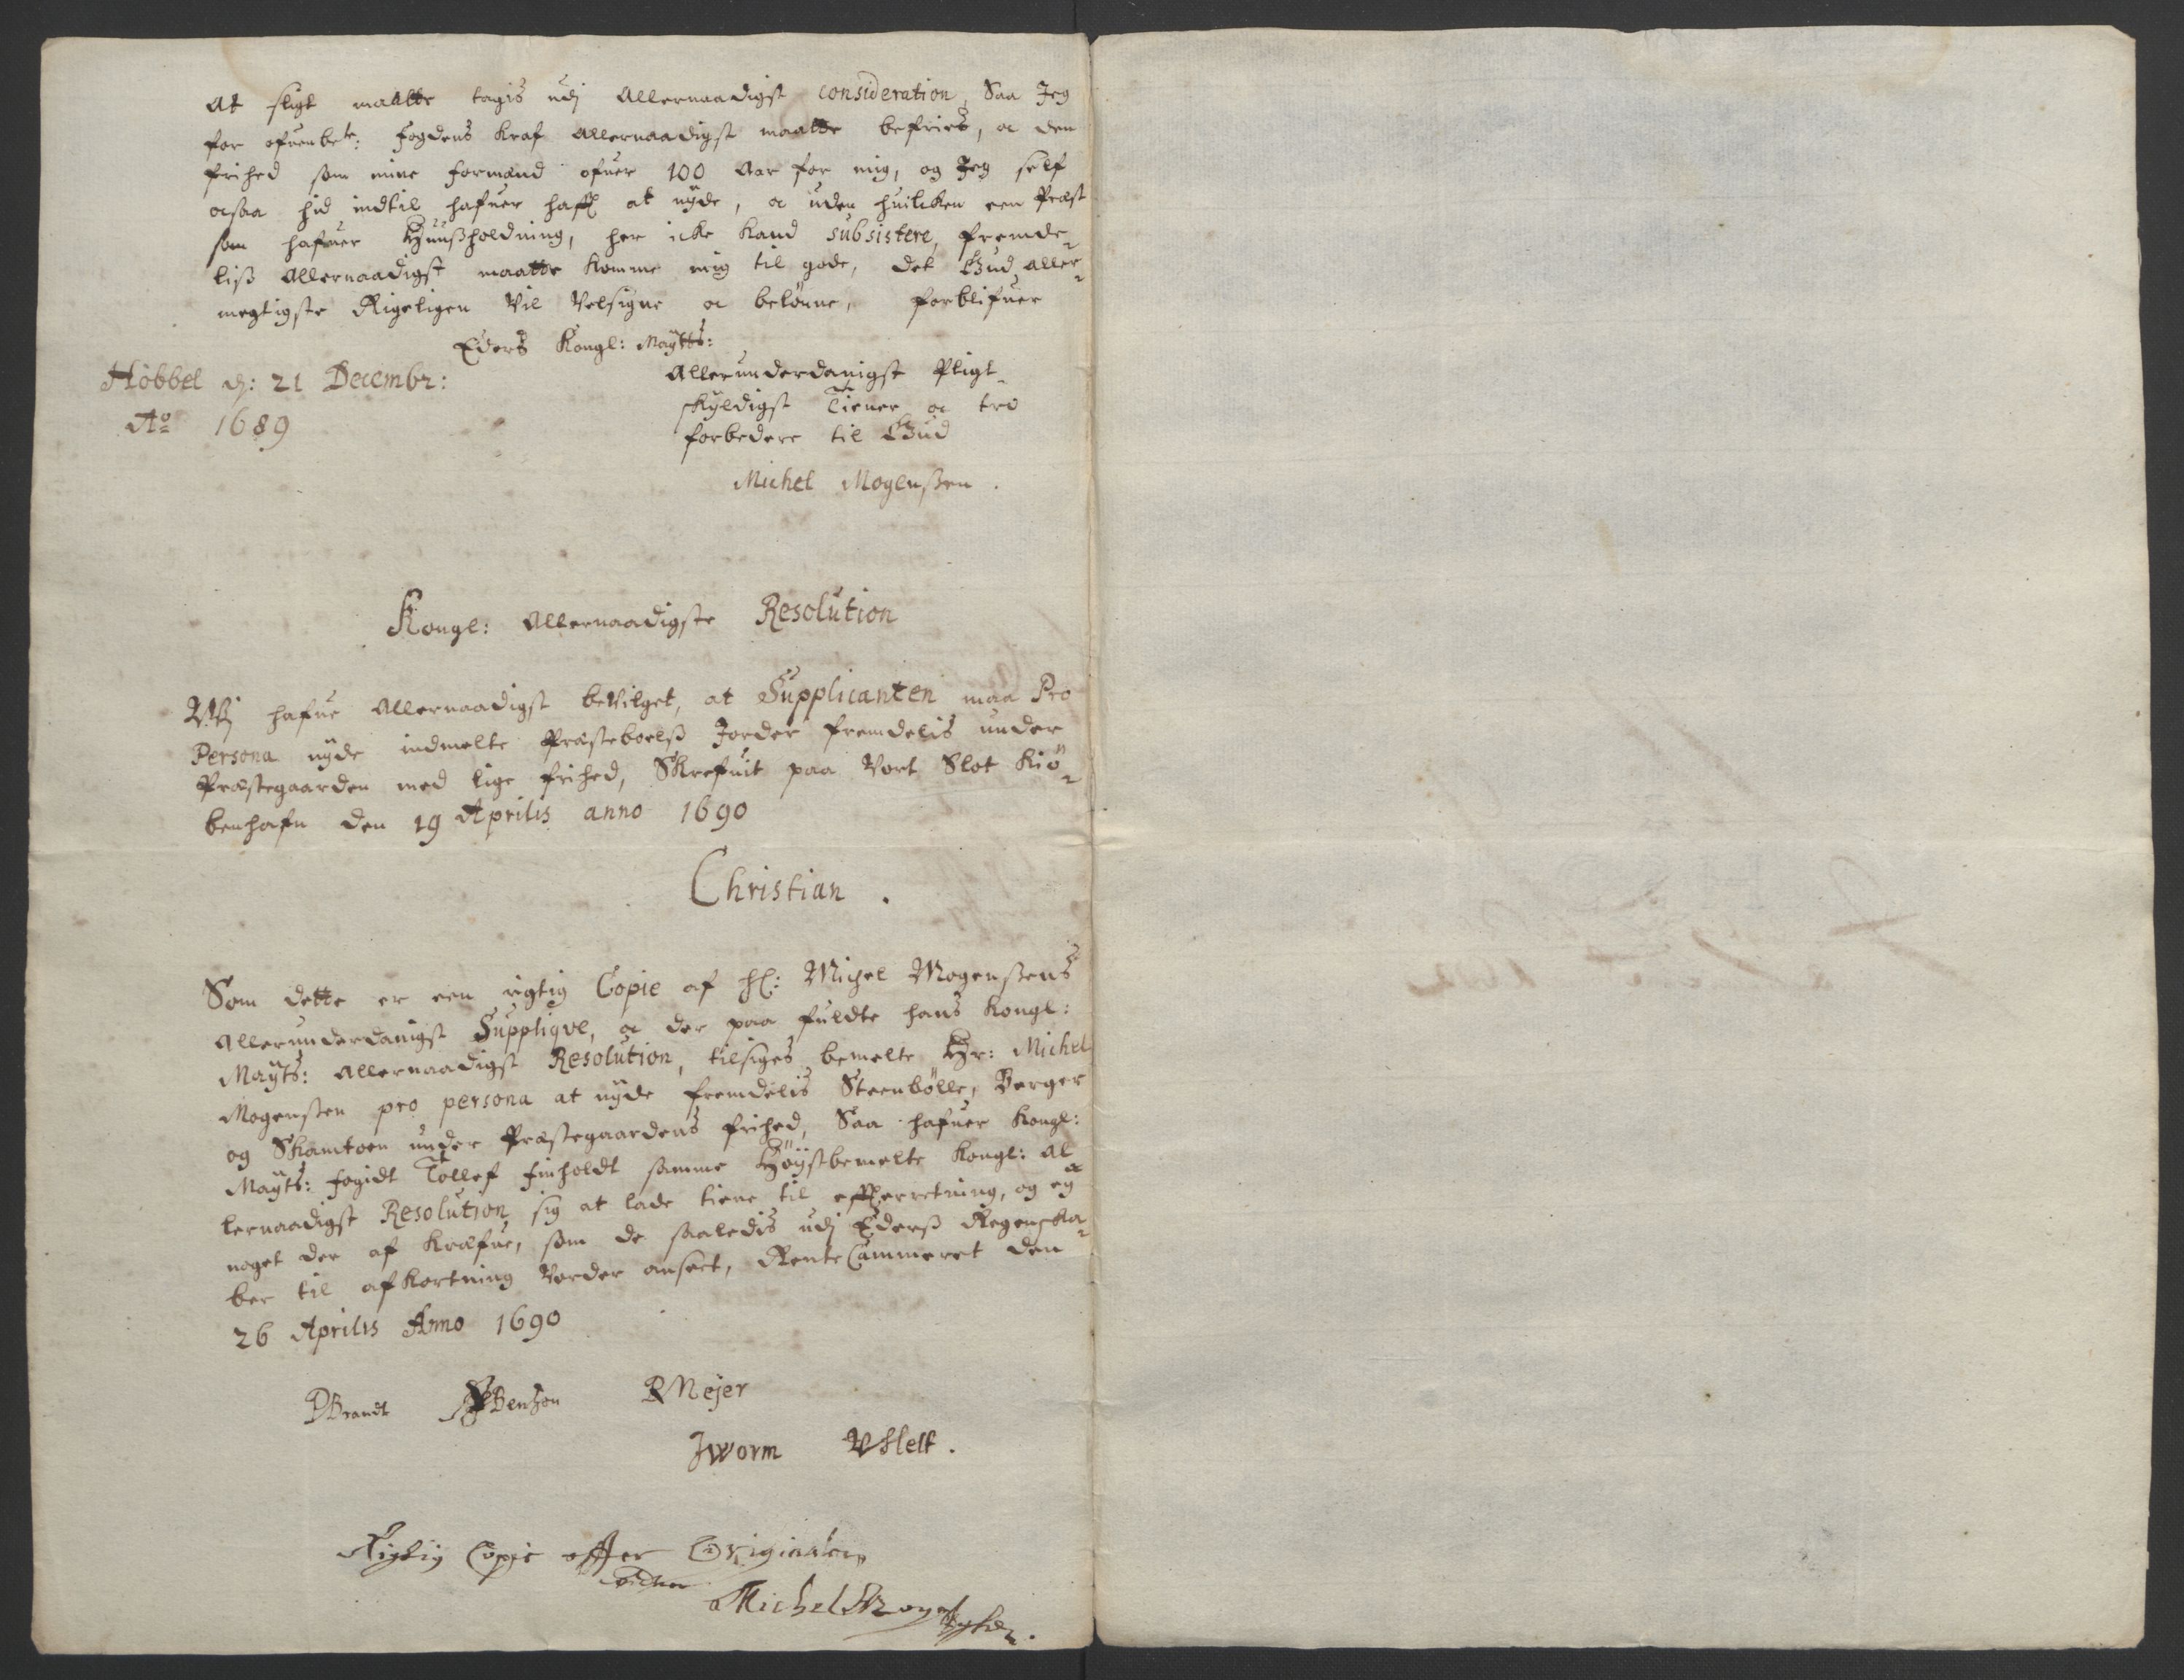 At sligt maatte tagis udj Allernaadigst consideration, Saa Jeg
for ofuenbete: fogdens kraf allernaadigst maatte befries, oc den
frihed som mine formænd ofuer 100 Aar for mig, og Jeg self
ocsaa hid indtil hafuer hafft at nyde, oc uden huilcken een Præst
som hafuer Huußholdning, her icke kand subsistere, fremde-
liß Allernaadigst maatte komme mig til gode, det Gud aller-
megtigste Rigeligen vil velsigne oc belönne, forblifuer
Eders Kongl: Maÿtts:
Höbbel d: 21 Decembr:
Ao 1689
Allerunderdanigst Pligt-
skyldigst Tiener oc tro
forbedere til Gud
Michel Mogenßen.
Kongl: Allernaadigste Resolution
Wj hafue Allernaadigst bevilget, at Supplicanten maa Pro
Persona nyde indmelte Præsteboelß Jorder fremdelis under
Præstegaarden med lige frihed, Skrefuit paa Vort Slot Kiö-
benhafn den 19 Aprilis anno 1690
Christian.
Som dette er een rigtig Copie af Hl: Michel Mogenßens
Allerunderdanigst Suppliqve, oc der paa fuldte hans Kongl:
Maÿts: Allernaadigst Resolution, tilsiges bemelte Hr: Michel
Mogenßen pro persona at nyde fremdelis Steenbölle, Berger
og Skamtoen under Præstegaardens frihed, Saa hafuer Kongl:
Maÿts: fogidt Tollef finholdt samme Höÿstbemelte Kongl: al-
lernaadigst Resolution, sig at lade tiene til effterretning, og ey
noget der af kræfue, som de saaledis udj Ederß Regenska-
ber til afkortning vorder anseet, RenteCammeret den
26 Aprilis Anno 1690
PBrandt Benzon RMejer
JWorm Vhlett.
Rigtig Copie effter Originalen
Michel Mogenßen.